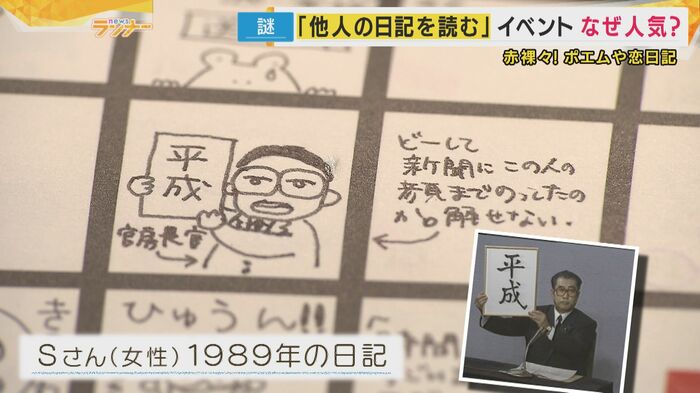 newsランナー
謎
「他人の日記を読む」イベント なぜ人気?
赤裸々! ポエムや恋日記
平
成
官房長官
どーして
新聞にこの人の
までのってしたの
か 解せない.
平成
き
ひゅうん!!
Sさん(女性)1989年の日記